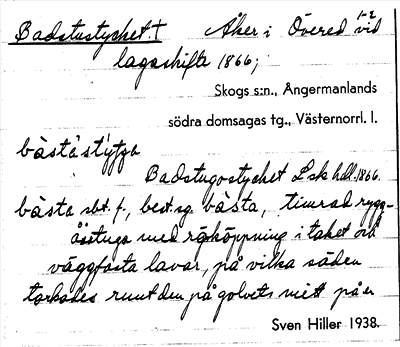 Badstustycket † Åker i Övered 1-2 vid
lagaskifte 1866;
Skogs s:n., Ångermanlands
södra domsagas tg., Västernorrl. l.
bàstàstýtja
Badstugostycket Lsk hdl. 1866.
bàsta sbt. f., best. sg. bàsta, timrad rygg-
åsstuga med rököppning i taket och
väggfasta lavar, på vilka säden
torkades runt den på golvets mitt på en
Sven Hiller 1938.